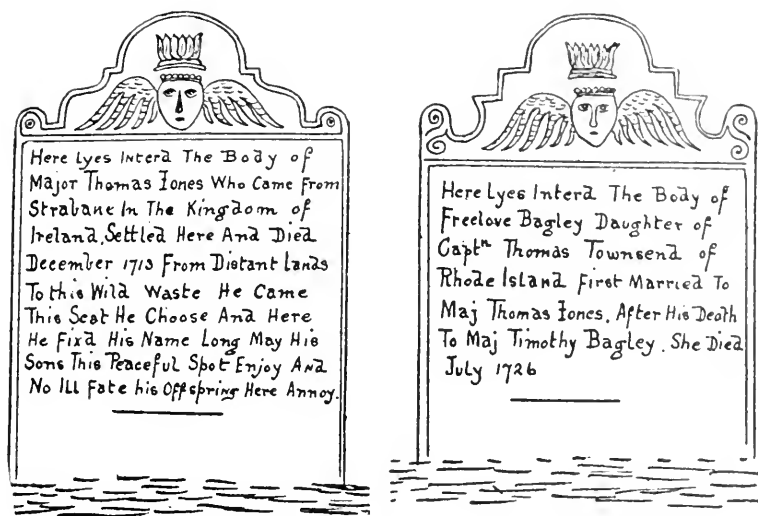 Here Lyes Interd The Body of
Major Thomas Jones Who Came From
Strabane In The Kingdom of
Ireland, Settled Here And Died
December 1713 From Distant Lands
To this Wild Waste He Came
This Seat He Choose And Here
He Fixd His Name Long May His
Sons This Peaceful Spot Enjoy And
No Ill Fate his Offspring Here Annoy.
Here Lyes Interd The Body of
Freelove Bagley Daughter of
Captn Thomas Townsend of
Rhode Island First Married To
Maj Thomas Jones, After His Death
To Maj Timothy Bagley. She Died
July 1726